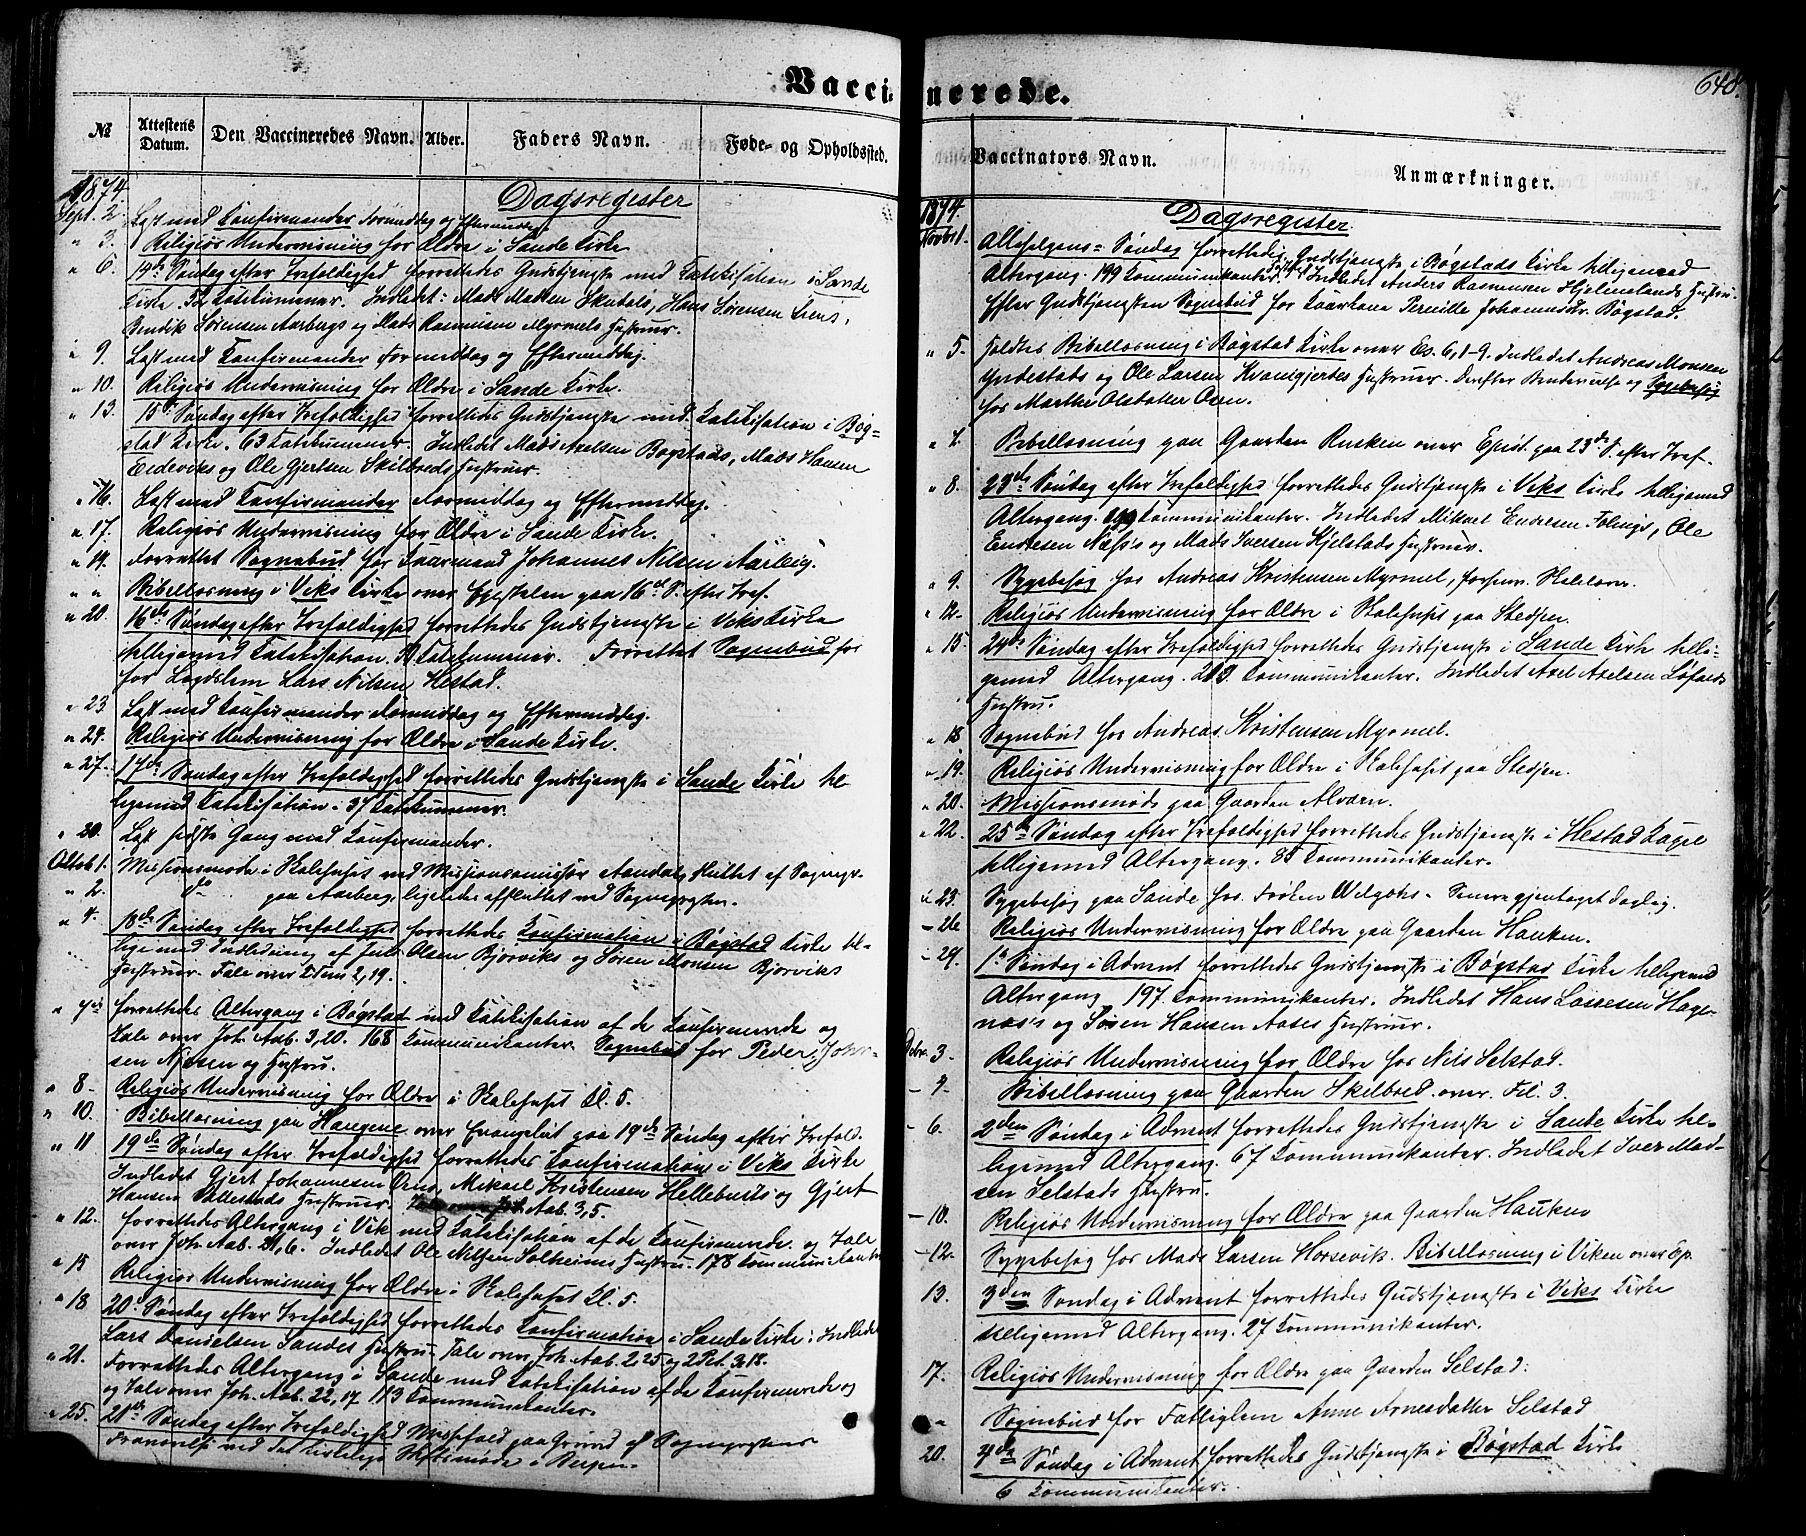 Vaccinerede.
648.
№
Attestens Datum.
Den Vaccineredes Navn.
Alder.
Faders Navn.
Føde- og Opholdssted.
Vaccinators Navn.
Anmærkninger.
1874. Dagsregister
Sept. 2. Læst med Konfirmander Formiddag og Eftermiddag
" 3. Religiøs Undervisning for Ældre i Sande Kirke
" 6. 14de Søndag efter Trefoldighed forrettedes Gudstjeneste med Katekisation i Sande
Kirke. 52 Katekumener. Indledet: Mads Madsen Skudals, Hans Sørensen Liens,
Bendik Sørensen Aarbergs og Mads Rasmusen Myrmels Hustruer.
" 9. Læst med Konfirmander Formiddag og Eftermiddag.
" 10. Religiøs Undervisning for Ældre i Sande Kirke.
" 13. 15de Søndag efter Trefoldighed forrettedes Gudstjeneste med Katekisation i Bøg=
stad Kirke. 63 Katekumener. Indledet Mads Axelsen Bøgstads, Mads Hansen
Eideviks og Ole Gjertsen Skilbreds Hustruer.
" 16. Læst med Konfirmander Formiddag og Eftermiddag.
" 17. Religiøs Undervisning for Ældre i Sande Kirke.
" 19. Forrettet Sognebud for Kaarmand Johannes Nilsen Aarleig.
" " Bibellæsning i Viks Kirke over Epistelen paa 16de S. efter Tref.
" 20. 16de Søndag efter Trefoldighed forrettedes Gudstjeneste i Viks Kirke
tilligemed Katekisation. Katekumener. Forrettet Sognebud for
for Lægdslem Lars Nilsen Hestad.
" 23 Læst med Konfirmander Formiddag og Eftermiddag.
" 24. Religiøs Undervisning for Ældre i Sande Kirke.
" 27. 17de Søndag efter Trefoldighed forrettedes Gudstjeneste i Sande Kirke til
ligemed Katekisation. 37 Katekumener.
" 30. Læst sidste Gang med Konfirmander.
Oktob 1. Missionsmøde i Skolehuset ved Missionsemissær Aandal, sluttet af Sognepr.
" 2. do paa Aarberg, ligeledes afsluttet ved Sognepresten.
" 4. 18de Søndag efter Trefoldighed forrettedes Konfirmation i Bøgstad Kirke til-
ligemed Indledning af Olsen Bjørviks og Søren Monsen Bjørviks
Hustruer. Tale over 2 Tim 2, 19.
forrettedes Altergang i Bøgstad med Katekisation af de Konfirmerede og
Tale over Joh. Aab. 3, 20. 168 Kommunikanter. Sognebud for Peder Johs-
sen og Hustru.
" 8 - Religiøs Undervisning for Ældre i Skolehuset Kl. 5.
" 10. Bibellæsning paa Haugene over Evangeliet paa 19de Søndag efter Trefold.
" 11 19de Søndag efter Trefoldighed forrettedes Konfirmation i Viks Kirke
Indledet Gjert Johannesen Mikael Kristensen og Gjert
Hansen Hustruer. Aab. 3, 5.
" 12. forrettedes Altergang i Vik med Katekisation af de Konfirmerede og Tale
over Joh. Aab. 21, 6. Indledet Ole Nilsen Solheims Hustru. 178 Kommunikanter
" 15 Religiøs Undervisning for Ældre i Skolehuset Kl. 5.
" 18 20de Søndag efter Trefoldighed forrettedes Konfirmation i Sande Kirke. Indledet
Lars Danielsen Sandes Hustru. Tale over Joh. Aab. 2, 25 og 2 Pet. 3, 18.
" 21. Forrettedes Altergang i Sande med Katekisation af de Konfirmerede og
og Tale over Joh. Aab. 22, 17 113 Kommunikanter.
" 25. 21de Søndag efter Trefoldighed Messefald paa Grund af Sognepresten
Fraværelse ved det kirkelige Stiftsmøde i Bergen.
1874. Dagsregister.
Novbr 1. Allehelgens= Søndag forrettedes Gudstjeneste i Bøgstads Kirke tilligemed
Altergang. 199 Kommunikanter. Indledet Anders Rasmusen Hjelmelands Hustru.
Efter Gudstjenesten Sognebud for Kaarkone Pernille Johannesdtr. Bøgstad.
" 5. Holdtes Bibellæsning i Bøgstad Kirke over Es. 6, 1-9. Indledet Andreas Monsen
Yndestads og Ole Larsen Kvamgjerdes Hustruer. Derefter og Sygebesøg
hos Marthe Olsdatter Osen.
" 7. Bibellæsning paa Gaarden Rusken over Epist. paa 23de S. efter Tref.
" 8. 23de Søndag efter Trefoldighed forrettedes Gudstjeneste i Viks Kirke tilligemed
Altergang. Kommunikanter. Indledet Mikael Endresen Folings, Ole
Endresen Næss's og Mads Iversen Kjelstads Hustruer.
" 9. Sygebesøg hos Andreas Kristensen Myrmel, forhenv. Skolelærer.
" 12. Religiøs Undervisning for Ældre i Skolehuset paa Stedjen.
" 15. 24de Søndag efter Trefoldighed forrettedes Gudstjeneste i Sande Kirke tilli-
gemed Altergang. 213. Kommunikanter. Indledet Axel Axelsen Løfalds
Hustru.
" 18 Sognebud hos Andreas Kristensen Myrmel.
" 19. Religiøs Undervisning for Ældre i Skolehuset paa Stedjen.
" 20. Missionsmøde paa Gaarden Alværn.
" 22. 25de Søndag efter Trefoldighed forrettedes Gudstjeneste i Hestad Kapel
tilligemed Altergang. 38 Kommunikanter.
" 25. Sygebesøg paa Sande hos Frøken Welgohs - Senere gjentaget daglig.
- 26 Religiøs Undervisning for Ældre paa Gaarden Hauken.
- 29. 1ste Søndag i Advent forrettedes Gudstjeneste i Bøgstad Kirke tilligemed
Altergang 197 Kommunikanter. Indledet Hans Lassesen Hage-
næs's og Søren Hansen Aases Hustruer.
Debr. 3 - Religiøs Undervisning for Ældre hos Nils Selstad.
- 4. Bibellæsning paa Gaarden Skilbred over Fil. 3.
- 6. 2den Søndag i Advent forrettedes Gudstjeneste i Sande Kirke til-
ligemed Altergang. 67 Kommunikanter. Indledet Iver Mad-
sen Selstads Hustru.
- 10. Religiøs Undervisning for Ældre paa Gaarden Hauken
- 12. Sygebesøg hos Mads Larsen Horsevik. Bibellæsning i Viken over Ep.
13. 3den Søndag i Advent forrettedes Gudstjeneste i Viks Kirke
tilligemed Altergang. 27 Kommunikanter.
17. Religiøs Undervisning for Ældre paa Gaarden Selstad.
" Sognebud for Fattiglem Anne Arnesdatter Selstad
20. 4de Søndag i Advent forrettedes Gudstjeneste i Bøgstad Kirke
6 Kommunikanter.